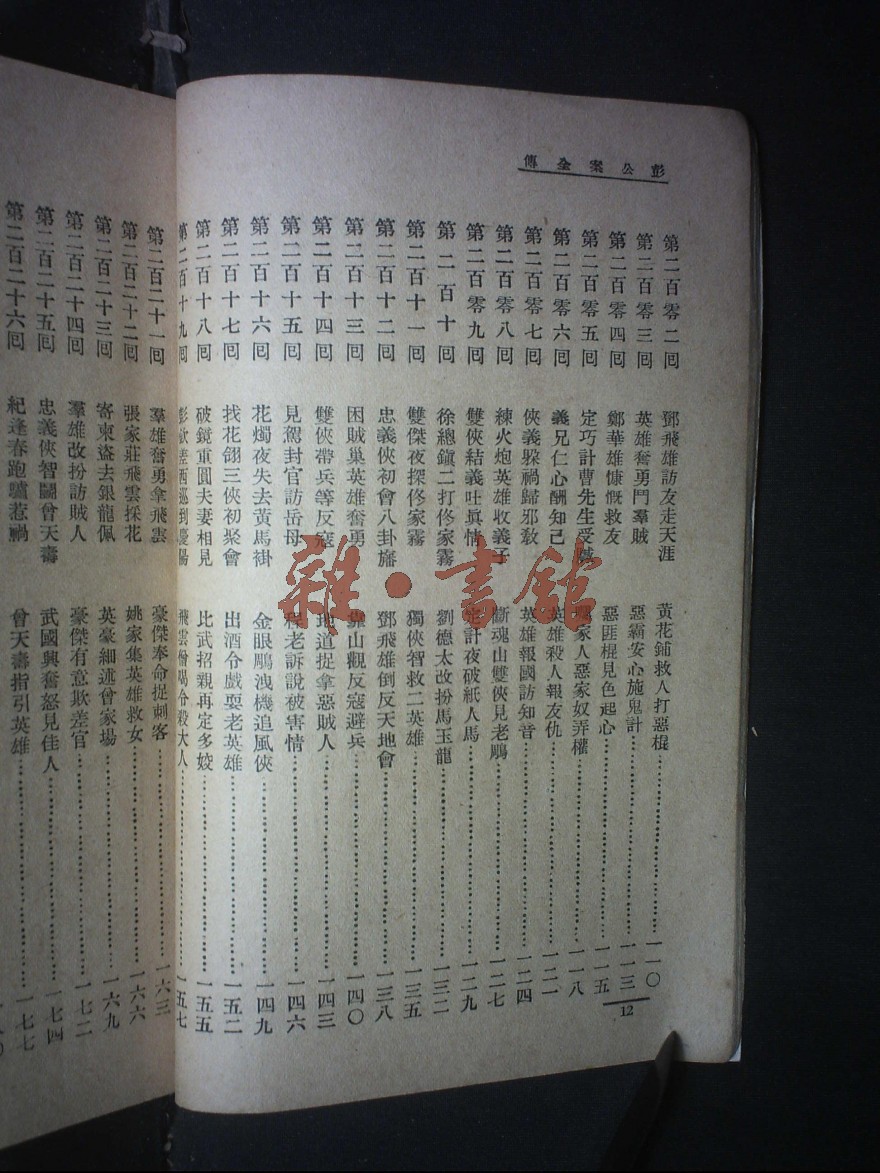 彭公案全傳
第二百零二囘 鄧飛雄訪友走天涯 黃花鋪救人打惡棍 一一〇
第二百零三囘 英雄奮勇鬥羣賊 惡霸安心施鬼計 一一三
第二百零四囘 鄭華雄慷慨救友 惡匪棍見色起心 一一五
第二百零五囘 定巧計曹先生受 家人惡家奴弄權 一一八
第二百零六囘 義兄仁心酬知己 英雄殺人報友仇 一二一
第二百零七囘 俠義躱禍歸邪敎 英雄報國訪知音 一二四
第二百零八囘 練火炮英雄收義子 斷魂山雙俠見老鵰 一二七
第二百零九囘 雙俠結義吐眞情 定計夜破紙人馬 一二九
第二百十囘 徐總鎭二打佟家霧 劉德太改扮馬玉龍 一三二
第二百十一囘 雙傑夜探佟家霧 獨俠智救二英雄 一三五
第二百十二囘 忠義俠初會八卦旛 鄧飛雄倒反天地會 一三八
第二百十三囘 困賊巢英雄奮勇 靠山觀反寇避兵 一四〇
第二百十四囘 雙俠帶兵等反寇 地道捉拿惡賊人 一四三
第二百十五囘 見駕封官訪岳母 程老訴說被害情 一四六
第二百十六囘 花燭夜失去黃馬褂 金眼鵰洩機追風俠 一四九
第二百十七囘 找花翎三俠初聚會 出酒令戲耍老英雄 一五二
第二百十八囘 破鏡重圓夫妻相見 比武招親再定多姣 一五五
第二百十九囘 彭欽差西巡到慶陽 飛雲僧喝令殺大人 一五七
第二百二十一囘 羣雄奮勇拿飛雲 豪傑奉命捉刺客 一六三
第二百二十二囘 張家莊飛雲採花 姚家集英雄救女 一六六
第二百二十三囘 寄柬盜去銀龍佩 英豪細述曾家場 一六九
第二百二十四囘 羣雄改扮訪賊人 豪傑有意欺差官 一七二
第二百二十五囘 忠義俠智鬭曾天壽 武國興奮怒見佳人 一七四
第二百二十六囘 紀逢春跑驢惹禍 曾天壽指引英雄 一七七
12